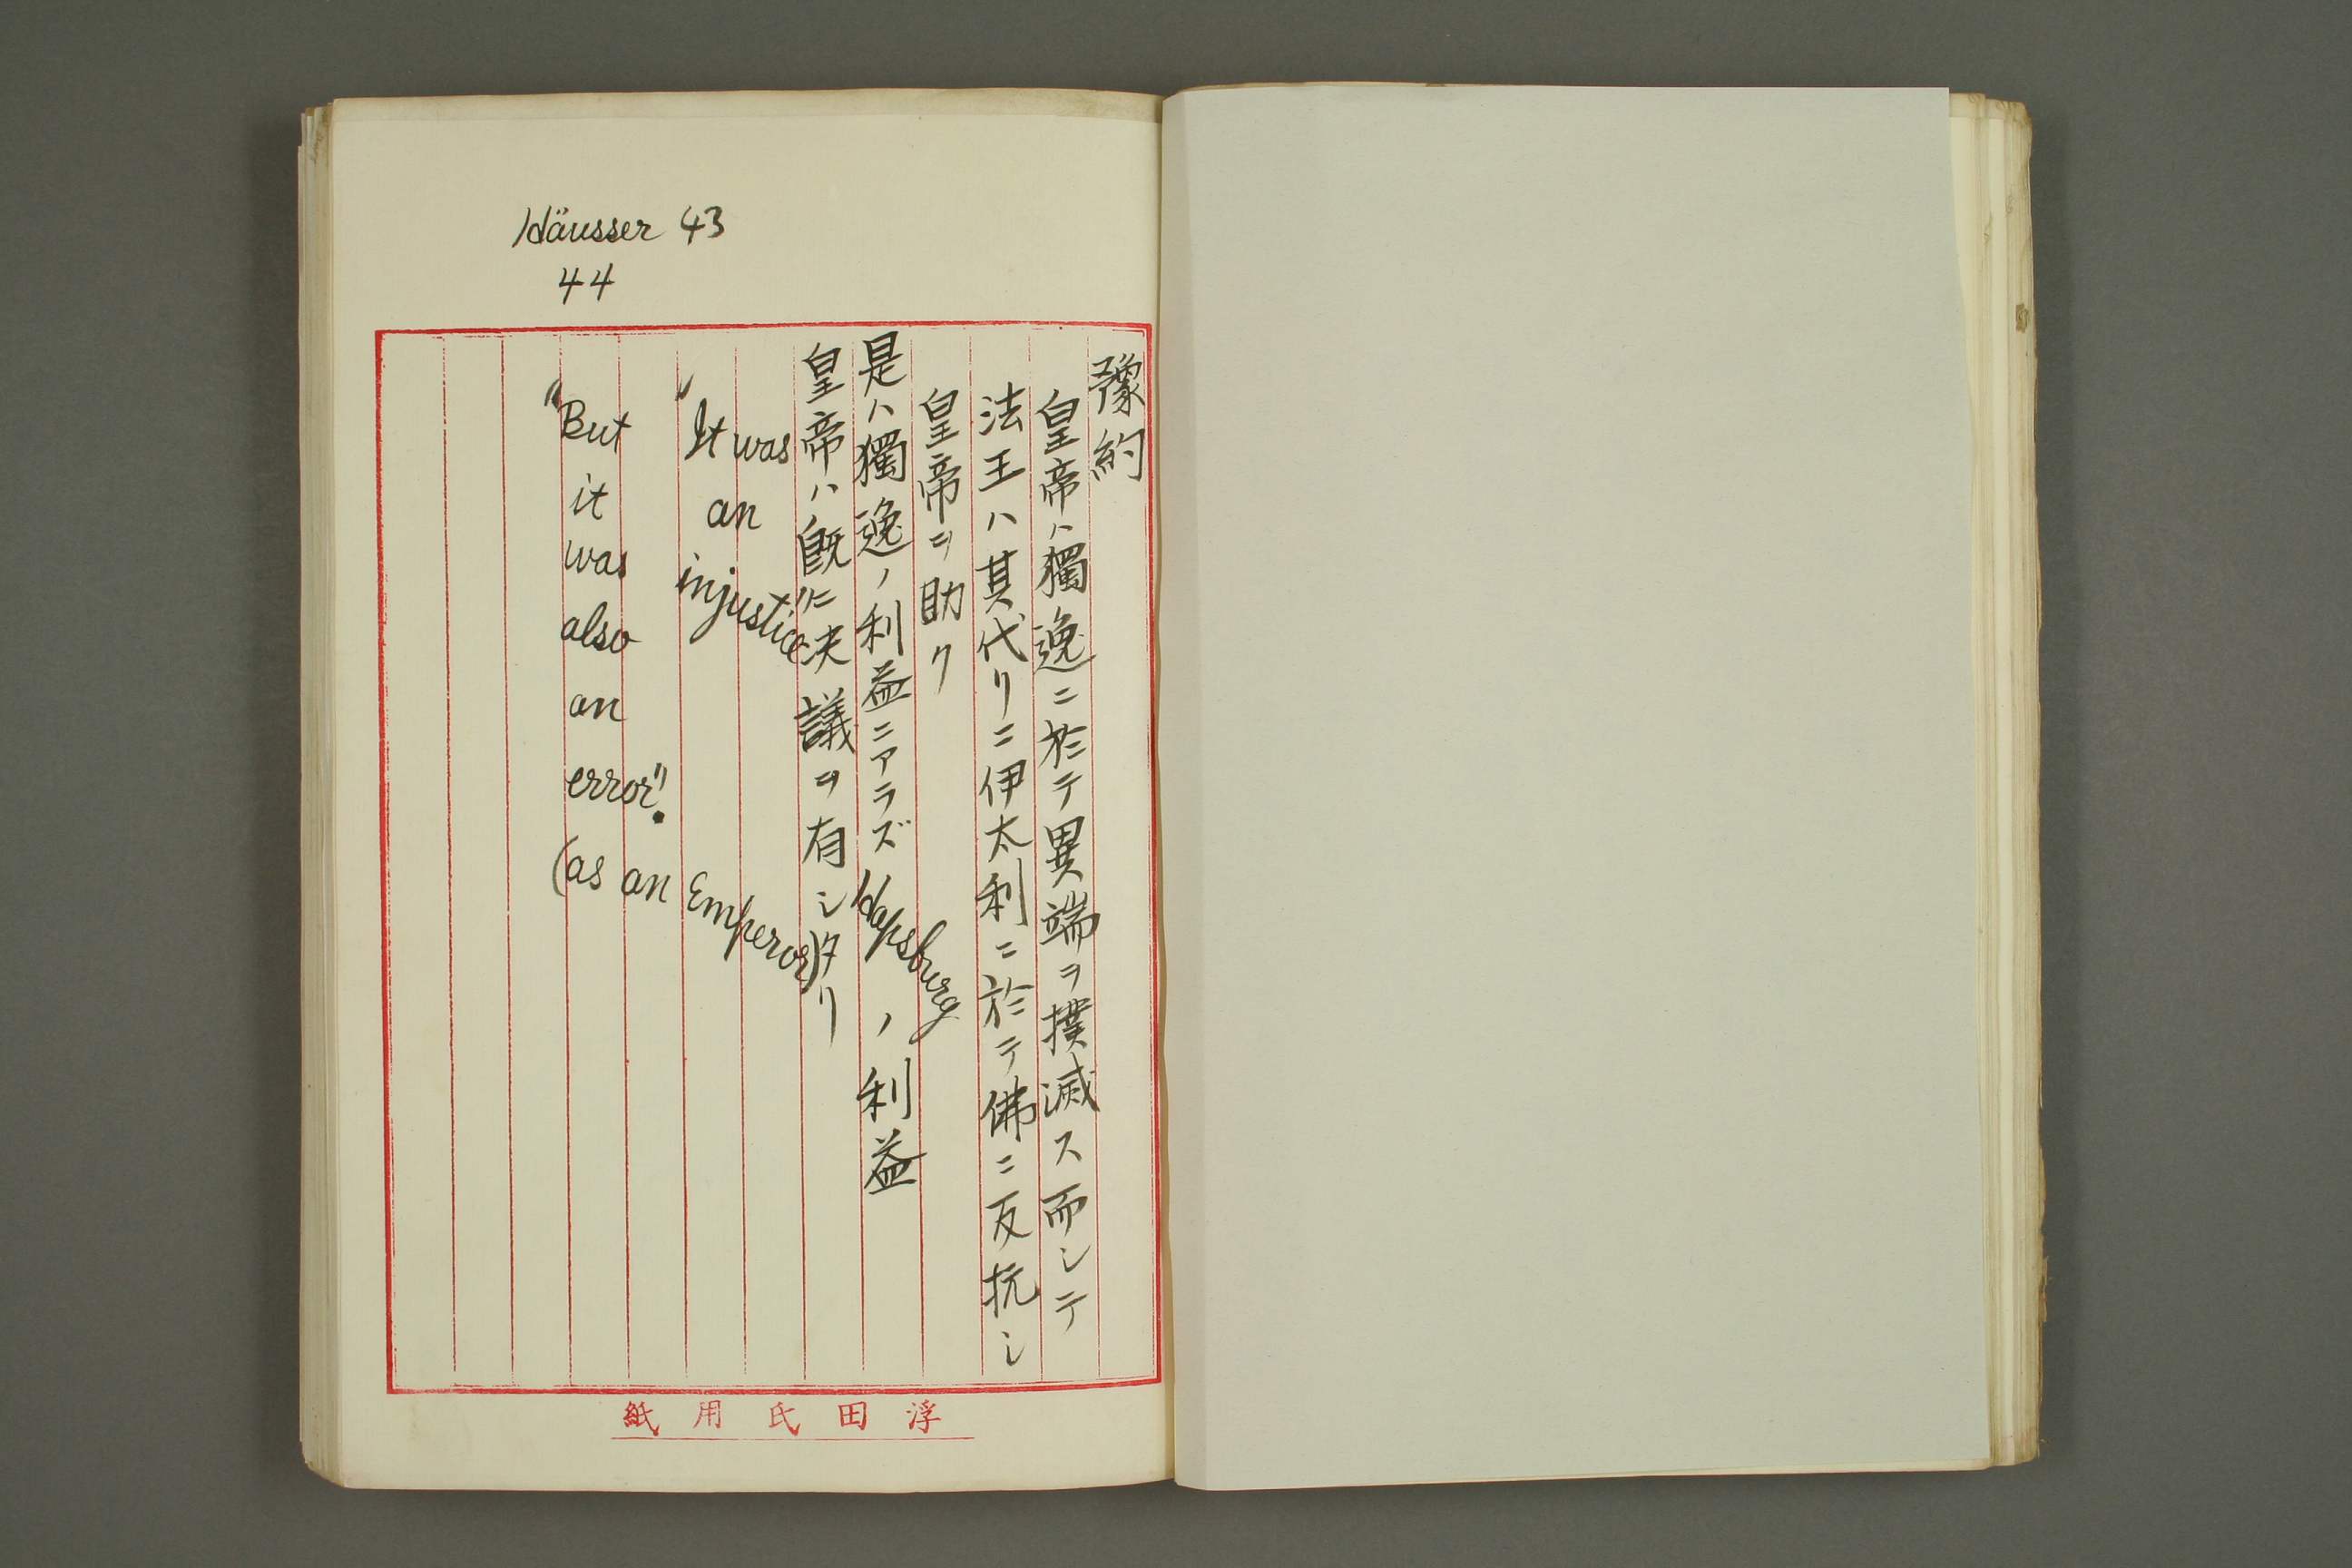 Häusser 43
44
豫約
皇帝ハ獨逸ニ於テ異端ヲ撲滅ス而シテ
法王ハ其代リニ伊太利ニ於テ佛ニ反抗シ
皇帝ヲ助ク
是ハ獨逸ノ利益ニアラズ Hapsburg ノ利益
皇帝ハ既ニ決議ヲ有シタリ
"It was
an
injustice"
"But
it
was
also
an
error".
(as an Emperor)
浮田氏用紙